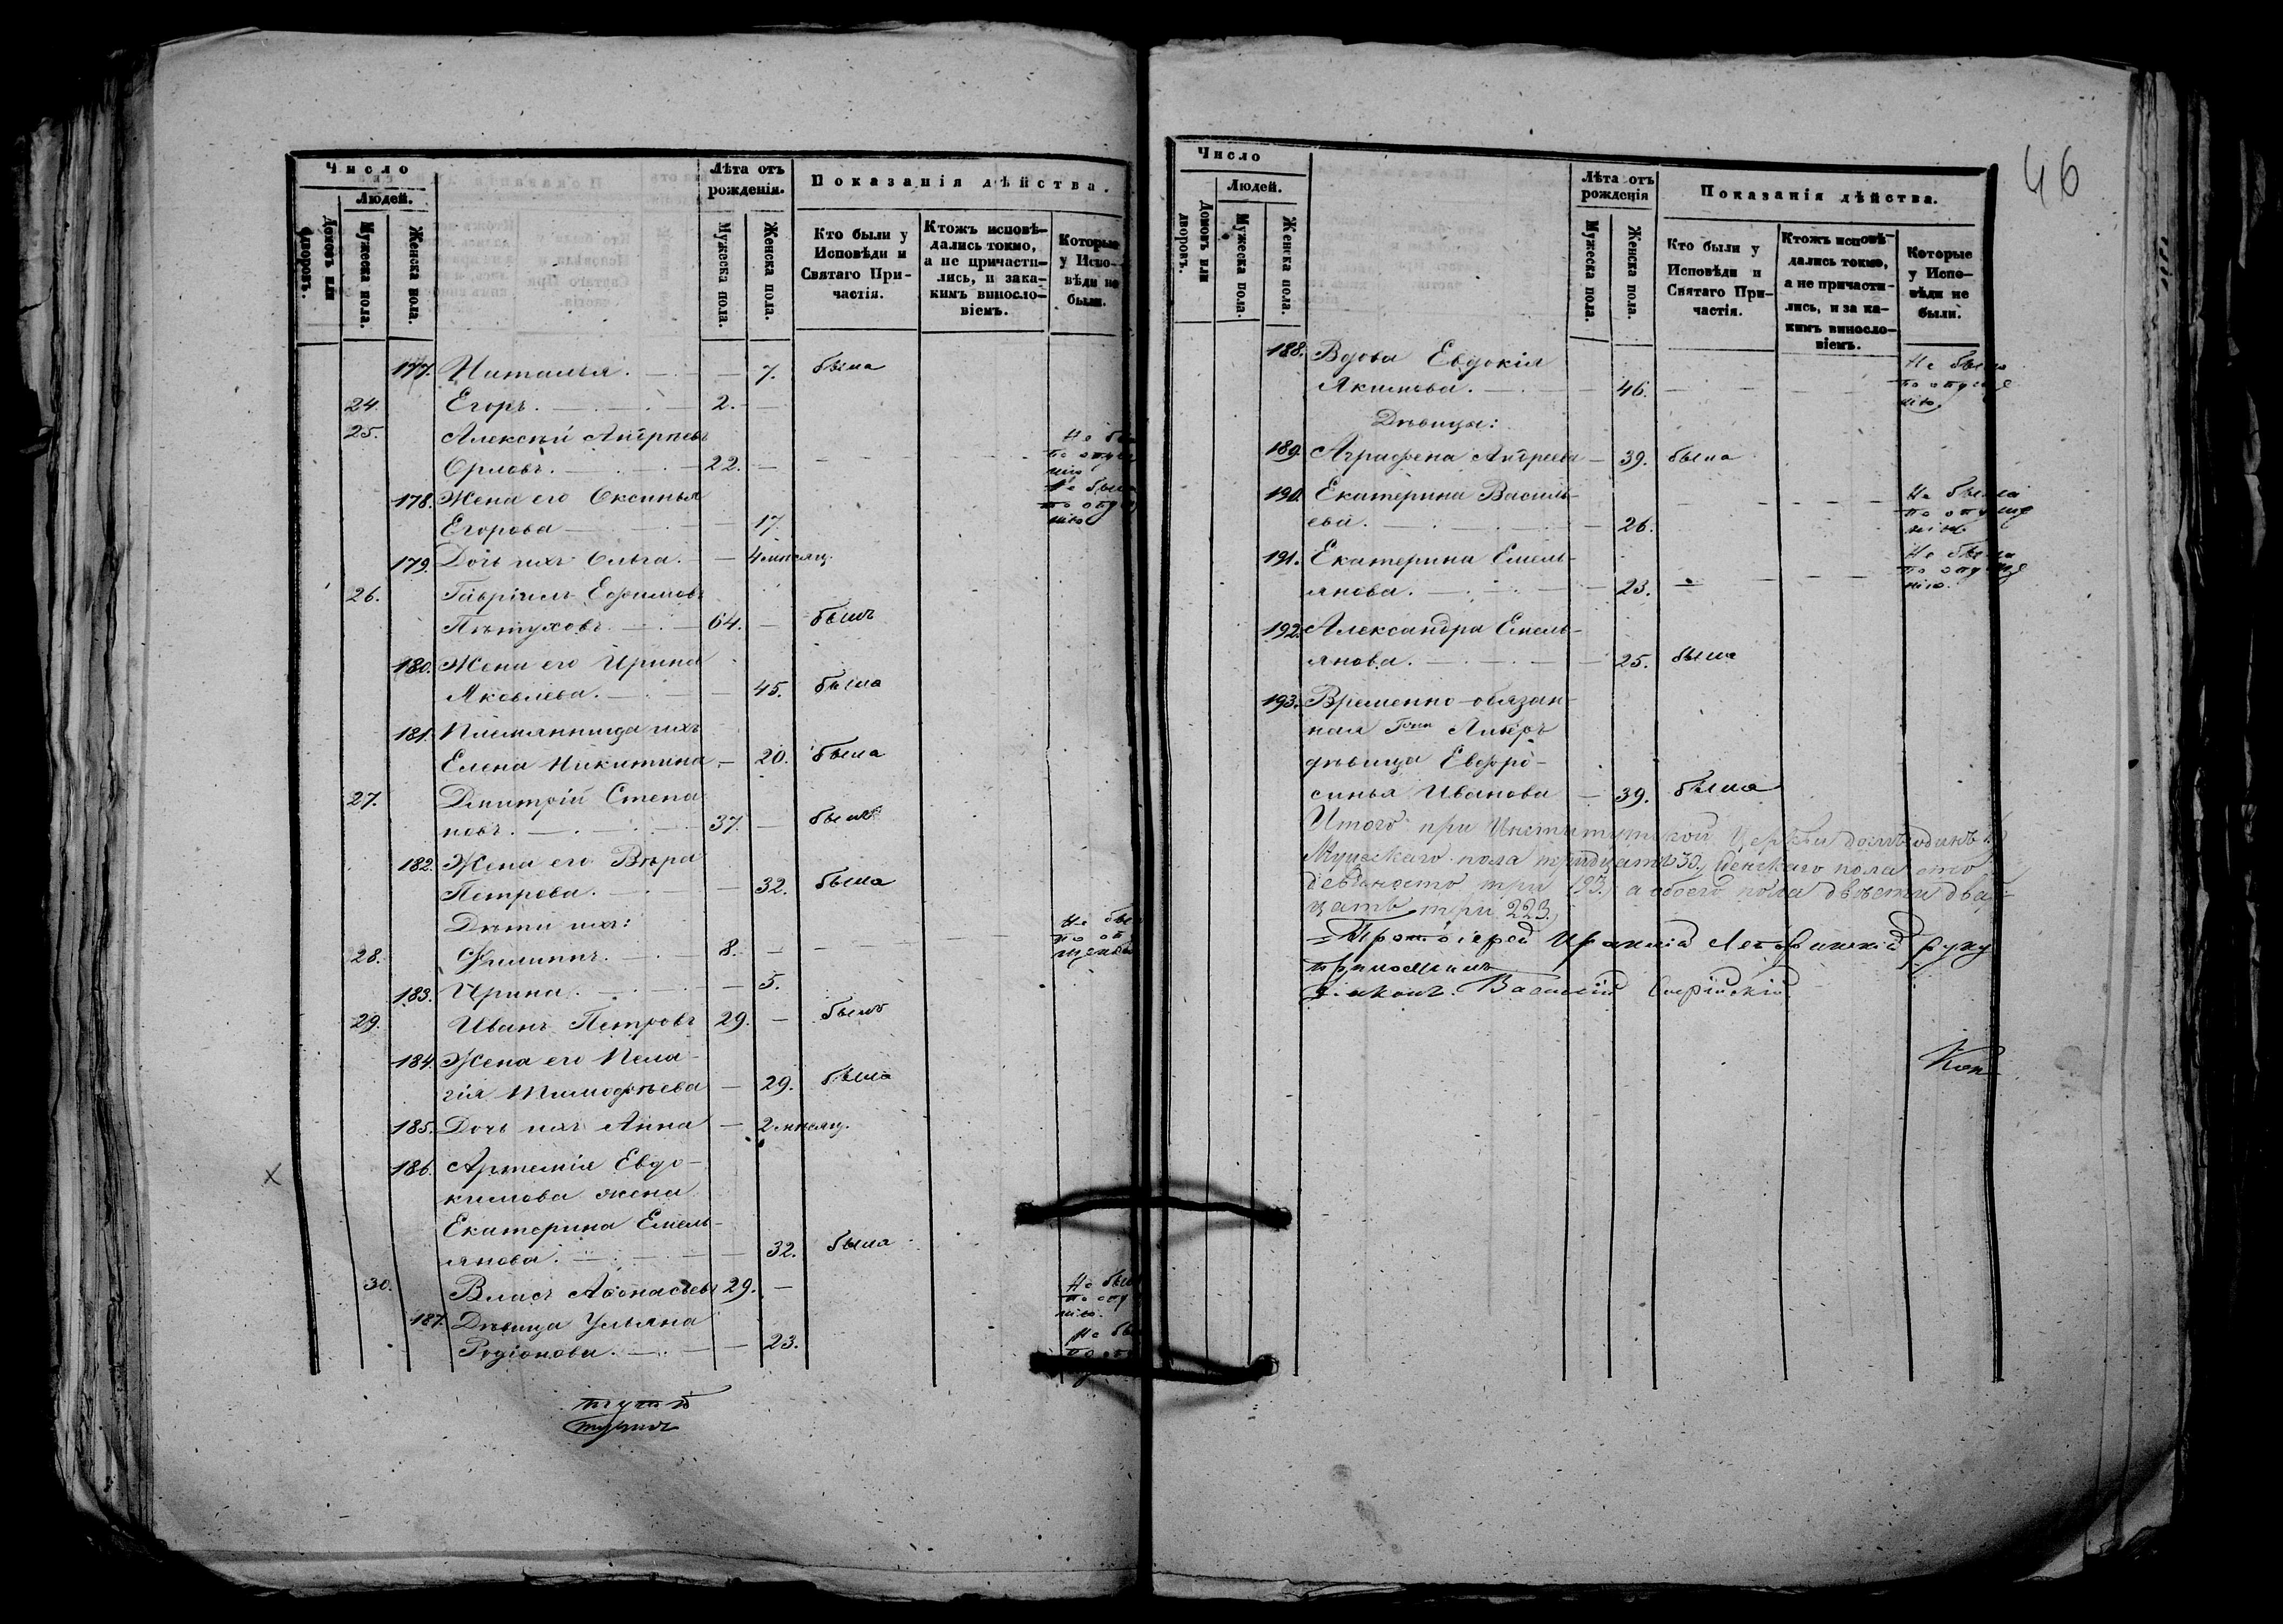 Число
Людей.
Домовъ или дворовъ.
Мужеска пола.
Женска пола.
Лѣта отъ рожденія.
Мужеска пола.
Женска пола.
Показанія дѣйства.
Кто были у Исповѣди и Святаго Причастія.
Ктожъ исповѣдались токмо, а не причастились, и закакимъ винословіемъ.
Которые у Исповѣди не были.
177. Наталья. — 7. была
24. Егоръ. — 2. —
25. Алексѣй Андреевъ
Орловъ. — 22. — Не
178. Жена его Оксинья
Егорова — 17. Не была
179. Дочь ихъ Ольга. — 4 мѣсяц.
26. Гавріилъ Ефимовъ
Пѣтуховъ. — 64. — былъ
180. Жена его Ирина
Яковлева. — 45. была
181. Племянница ихъ
Елена Никитина. — 20. была
27. Дмитрій Степа
новъ. — 37. — былъ
182. Жена его Вѣра
Петрова. — 32. была
Дѣти ихъ:
28. Филиппъ. — 8. — Не
183. Ирина. — 5.
29. Иванъ Петровъ 29. — былъ
184. Жена его Пела-
гія Тимофѣева — 29. была
185. Дочь ихъ Анна — 2 мѣсяц.
186. Артемія Евдо-
кимова жена
Екатерина Емель-
янова. — 32. была
30. Власъ Аѳонасьевъ 29. — Не
187. Дѣвица Ульяна
Родіонова. — 23. Не
46
Число
Людей.
Домовъ или дворовъ.
Мужеска пола.
Женска пола.
Лѣта отъ рожденія
Мужеска пола.
Женска пола.
Показанія дѣйства.
Кто были у Исповѣди и Святаго Причастія.
Ктожъ исповѣдались токмо, а не причастились, и за какимъ винословіемъ.
Которые у Исповѣди не были.
188. Вдова Евдокія
Якимова. — 46. — Не была по опуще нію
Дѣвицы:
189. Аграфена Андреева — 39. была
190. Екатерина Василь-
ева. — 26. — Не была по опуще нію.
191. Екатерина Емель-
янова. — 23. — Не была по опуще нію.
192. Александра Емель-
янова. — 25. была
193. Временно-обязан-
ная
дѣвица Евфро-
синья Иванова — 39. была
Итого при Институтской Церкви домъ одинъ 1.)
Мужескаго пола тридцать 30., Женскаго пола сто
девяносто три 193.) а обоего пола двѣсти двад-
цать три 223.)
Протоіерей руку
приложилъ
Діаконъ Василій